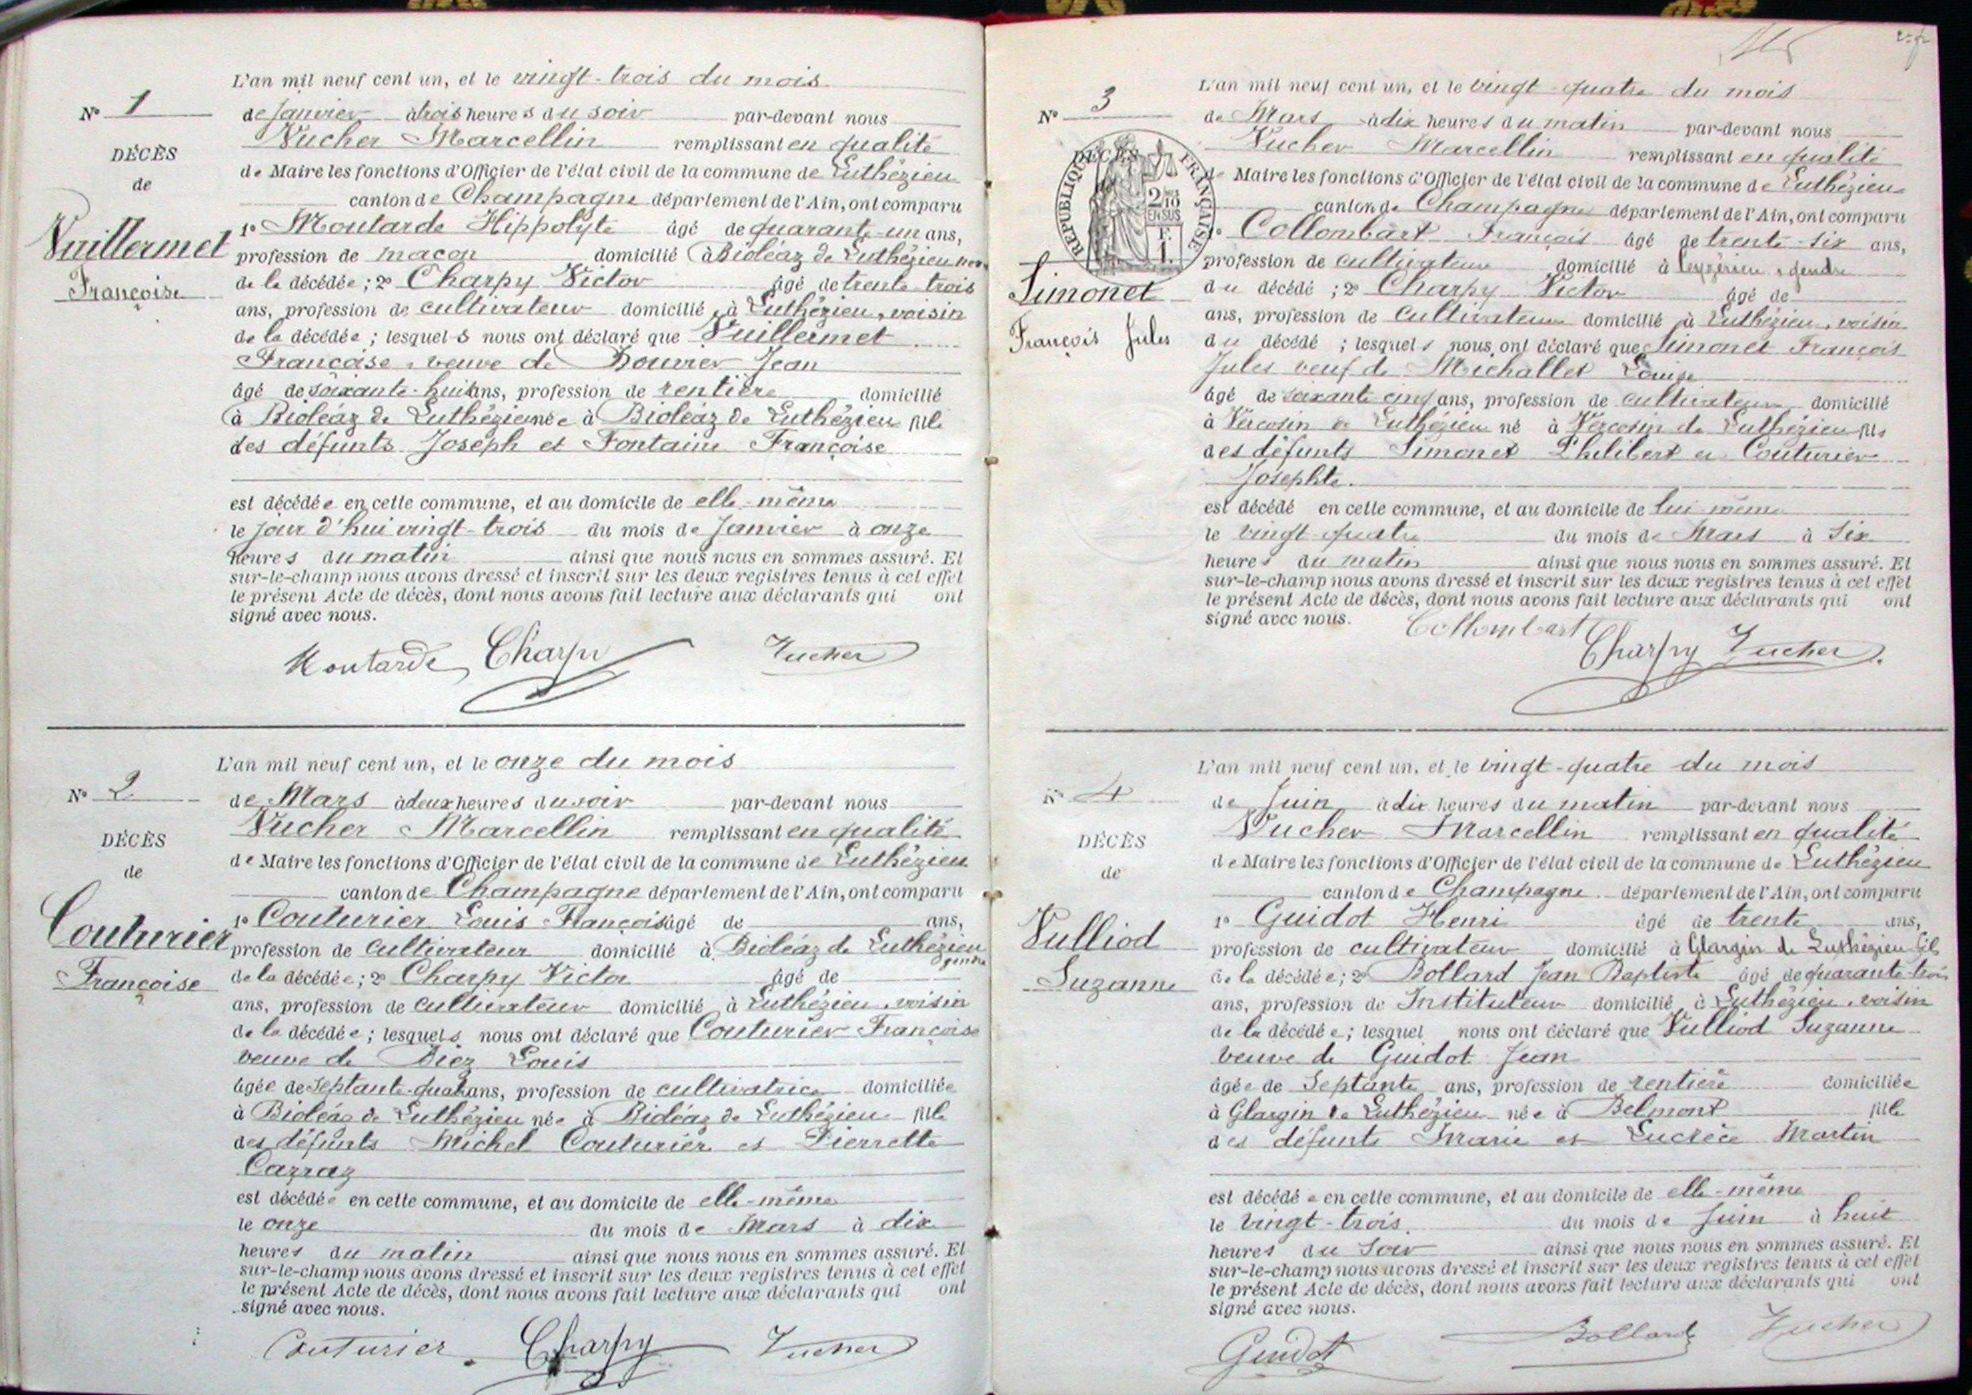 N° 1
DÉCÈS
de
Vuillermet
Françoise
L'an mil neuf cent un, et le vingt-trois du mois
de Janvier à trois heures du soir par-devant nous
Vucher Marcellin remplissant en qualité
de Maire les fonctions d'Officier de l'état civil de la commune de Luthézieu
canton de Champagne département de l'Ain, ont comparu
1° Moutarde Hippolyte âgé de quarante-un ans,
profession de maçon domicilié à Bioléaz de Luthézieu
de la décédée ; 2° Charpy Victor âgé de trente trois
ans, profession de cultivateur domicilié à Luthézieu, voisin
de la décédée ; lesquels nous ont déclaré que Vuillermet
Françoise, veuve de Bouvier Jean
âgé de soixante-huit ans, profession de rentière domicilié
à Bioléaz de Luthézieu née à Bioléaz de Luthézieu fille
des défunts Joseph et Fontaine Françoise
est décédée en cette commune, et au domicile de elle-même
le jour d'hui vingt-trois du mois de Janvier à onze
heures du matin ainsi que nous nous en sommes assuré. Et
sur-le-champ nous avons dressé et inscrit sur les deux registres tenus à cet effet
le présent Acte de décès, dont nous avons fait lecture aux déclarants qui ont
signé avec nous.
Moutarde Charpy Vucher
N° 2
DÉCÈS
de
Couturier
Françoise
L'an mil neuf cent un, et le onze du mois
de Mars à deux heures du soir par-devant nous
Vucher Marcellin remplissant en qualité
de Maire les fonctions d'Officier de l'état civil de la commune de Luthézieu
canton de Champagne département de l'Ain, ont comparu
1° Couturier Louis François âgé de ans,
profession de cultivateur domicilié à Bioléaz de Luthézieu
gendre
de la décédée ; 2° Charpy Victor âgé de
ans, profession de cultivateur domicilié à Luthézieu, voisin
de la décédée ; lesquels nous ont déclaré que Couturier Françoise
veuve de Diez Louis
âgée de septante-quatre ans, profession de cultivatrice domiciliée
à Bioléaz de Luthézieu née à Bioléaz de Luthézieu fille
des défunts Michel Couturier et Pierrette
Cazraz
est décédée en cette commune, et au domicile de elle-même
le onze du mois de Mars à dix
heures du matin ainsi que nous nous en sommes assuré. Et
sur-le-champ nous avons dressé et inscrit sur les deux registres tenus à cet effet
le présent Acte de décès, dont nous avons fait lecture aux déclarants qui ont
signé avec nous.
Couturier Charpy Vucher
N° 3
DÉCÈS
RÉPUBLIQUE FRANÇAISE
2/10
EN SUS
Simonet
François Jules
L'an mil neuf cent un, et le vingt-quatre du mois
de Mars à dix heures du matin par-devant nous
Vucher Marcellin remplissant en qualité
de Maire les fonctions d'Officier de l'état civil de la commune de Luthézieu
canton de Champagne département de l'Ain, ont comparu
1° Collombart François âgé de trente-six ans,
profession de cultivateur domicilié à Leyzérieu, gendre
du décédé ; 2° Charpy Victor âgé de
ans, profession de cultivateur domicilié à Luthézieu, voisin
du décédé ; lesquels nous ont déclaré que Simonet François
Jules veuf de Michallet Louise
âgé de soixante cinq ans, profession de cultivateur domicilié
à Vercosin de Luthézieu né à Vercosin de Luthézieu fils
des défunts Simonet Philibert et Couturier
Josephte.
est décédé en cette commune, et au domicile de lui même
le vingt-quatre du mois de Mars à six
heures du matin ainsi que nous nous en sommes assuré. Et
sur-le-champ nous avons dressé et inscrit sur les deux registres tenus à cet effet
le présent Acte de décès, dont nous avons fait lecture aux déclarants qui ont
signé avec nous.
Collombart Charpy Vucher
N° 4
DÉCÈS
de
Vulliod
Suzanne
L'an mil neuf cent un, et le vingt-quatre du mois
de Juin à dix heures du matin par-devant nous
Vucher Marcellin remplissant en qualité
de Maire les fonctions d'Officier de l'état civil de la commune de Luthézieu
canton de Champagne département de l'Ain, ont comparu
1° Guidot Henri âgé de trente ans,
profession de cultivateur domicilié à Glargin de Luthézieu fils
de la décédée ; 2° Bollard Jean Baptiste âgé de quarante-trois
ans, profession de Instituteur domicilié à Luthézieu, voisin
de la décédée ; lesquel nous ont déclaré que Vulliod Suzanne
veuve de Guidot Jean
âgée de Septante ans, profession de rentière domiciliée
à Glargin de Luthézieu née à Belmont fille
des défunts Marie et Lucrèce Martin
est décédée en cette commune, et au domicile de elle-même
le vingt-trois du mois de Juin à huit
heures du Soir ainsi que nous nous en sommes assuré. Et
sur-le-champ nous avons dressé et inscrit sur les deux registres tenus à cet effet
le présent Acte de décès, dont nous avons fait lecture aux déclarants qui ont
signé avec nous.
Guidot Bollard Vucher